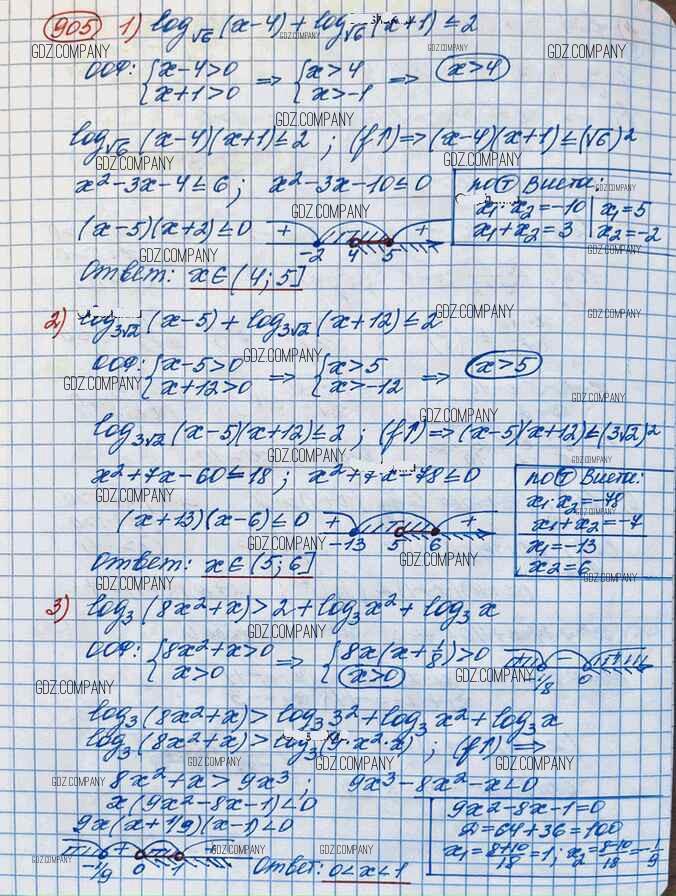 905 1) log√6 (x-4) + log√6 (x+1) ≤ 2
ООФ: {x-4>0 {x+1>0 => {x>4 {x>-1 => x>4
log√6 (x-4)(x+1) ≤ 2 ; (f↑) => (x-4)(x+1) ≤ (√6)²
x²-3x-4 ≤ 6 ; x²-3x-10 ≤ 0
по Т Виета:
x₁·x₂ = -10 | x₁ = 5
x₁+x₂ = 3 | x₂ = -2
(x-5)(x+2) ≤ 0 + -2 4 5 +
Ответ: x ∈ (4; 5]
2) log3√2 (x-5) + log3√2 (x+12) ≤ 2
ООФ: {x-5>0 {x+12>0 => {x>5 {x>-12 => x>5
log3√2 (x-5)(x+12) ≤ 2 ; (f↑) => (x-5)(x+12) ≤ (3√2)²
x²+7x-60 ≤ 18 ; x²+7x-78 ≤ 0
по Т Виета:
x₁·x₂ = -78
x₁+x₂ = -7
x₁ = -13
x₂ = 6
(x+13)(x-6) ≤ 0 + -13 5 6 +
Ответ: x ∈ (5; 6]
3) log₃ (8x²+x) > 2 + log₃ x² + log₃ x
ООФ: {8x²+x>0 {x>0 => {8x(x+1/8)>0 {x>0 + -1/8 - 0 +
log₃ (8x²+x) > log₃ 3² + log₃ x² + log₃ x
log₃ (8x²+x) > log₃ (9·x²·x) ; (f↑) =>
8x²+x > 9x³ ; 9x³-8x²-x < 0
x(9x²-8x-1) < 0
9x(x+1/9)(x-1) < 0
9x²-8x-1=0
D=64+36=100
x₁ = 8+10/18 = 1; x₂ = 8-10/18 = -1/9
- -1/9 + 0 - 1 +
Ответ: 0<x<1
GDZ.COMPANY